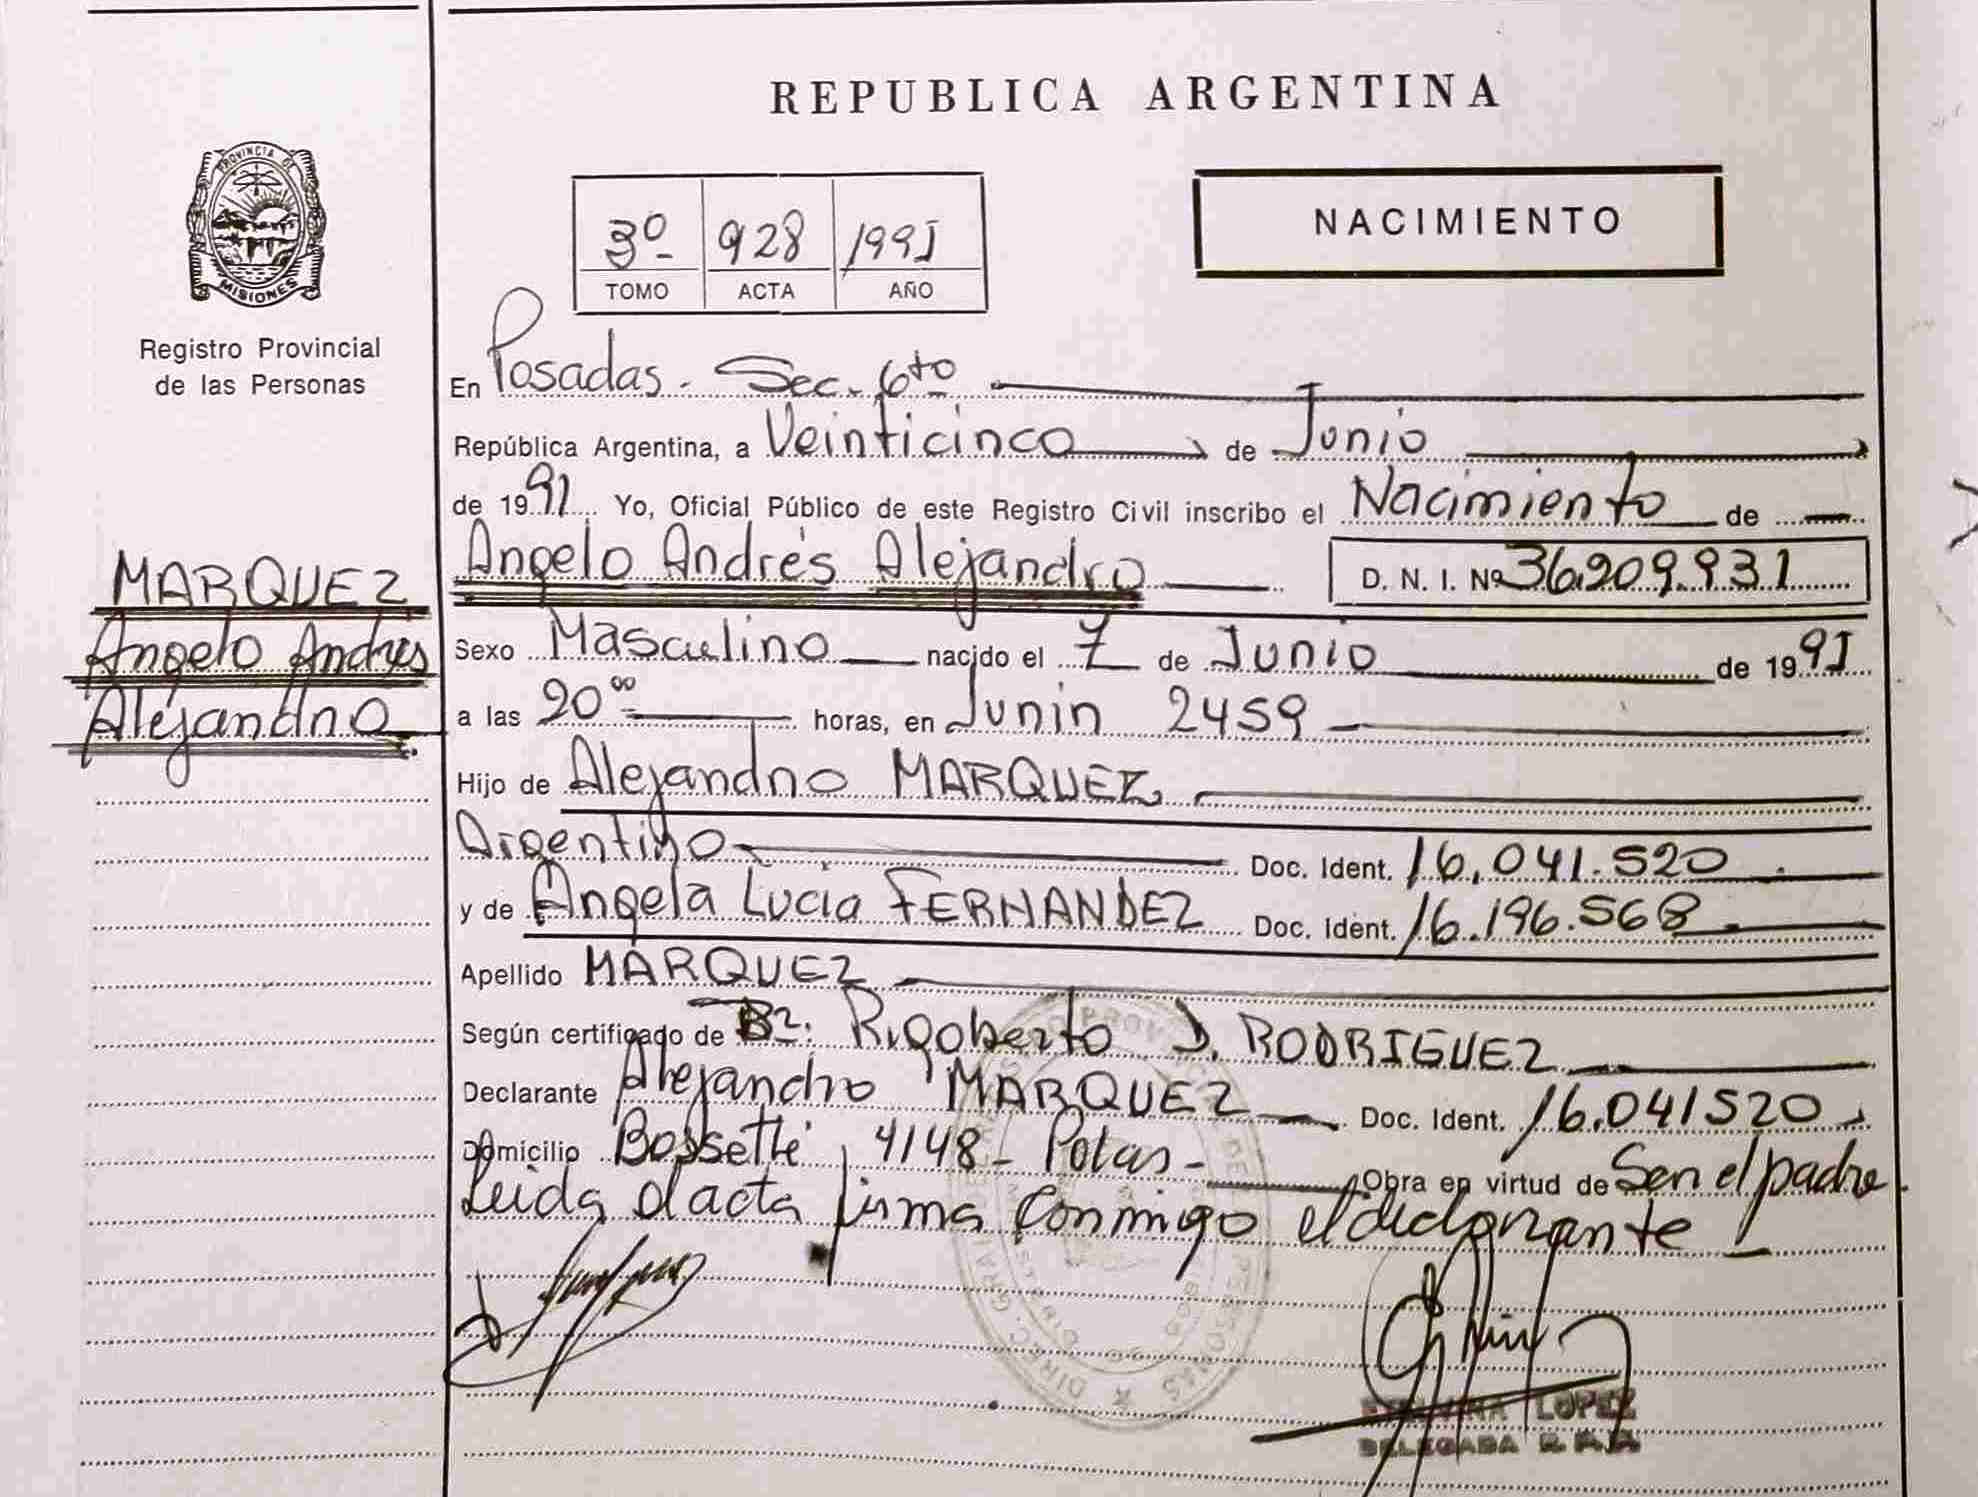 REPUBLICA ARGENTINA
PROVINCIA DE
MISIONES
Registro Provincial
de las Personas
3º 928 1991
TOMO ACTA AÑO
NACIMIENTO
En Posadas. Sec. 6to
República Argentina, a Veinticinco de Junio
de 1991 Yo, Oficial Público de este Registro Civil inscribo el Nacimiento de
MARQUEZ
Angelo Andres
Alejandro
Angelo Andrés Alejandro D. N. I. Nº 36.209.931
Sexo Masculino nacido el 7 de Junio de 1991
a las 20⁰⁰ horas, en Junin 2459
Hijo de Alejandro MARQUEZ
Argentino Doc. Ident. 16.041.520
y de Angela Lucia FERNANDEZ Doc. Ident. 16.196.568
Apellido MARQUEZ
Según certificado de Rigoberto D. RODRIGUEZ
Declarante Alejandro MARQUEZ Doc. Ident. 16.041520
Domicilio 4148 - Obra en virtud de Ser el padre.
Leida el acta firma conmigo el declarante
LOPEZ
DELEGADA